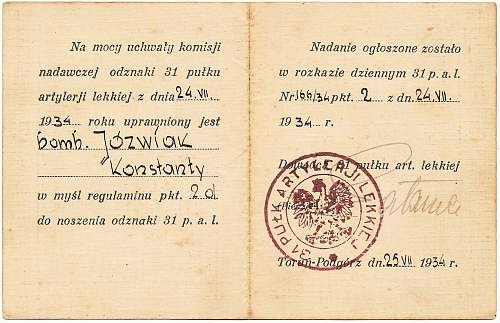 Na mocy uchwały komisji
nadawczej odznaki 31 pułku
artylerji lekkiej z dnia 24.VII.
1934 roku uprawniony jest
bomb. Jóźwiak
Konstanty
w myśl regulaminu pkt. 2 d
do noszenia odznaki 31 p. a. l.
Nadanie ogłoszone zostało
w rozkazie dziennym 31 p. a. l.
Nr 166/34 pkt. 2 z dn. 24.VII.
1934 r.
Dowódca 31 pułku art. lekkiej
31 PUŁK ARTYLERJI LEKKIEJ
Toruń-Podgórz dn. 25 VII 1934 r.